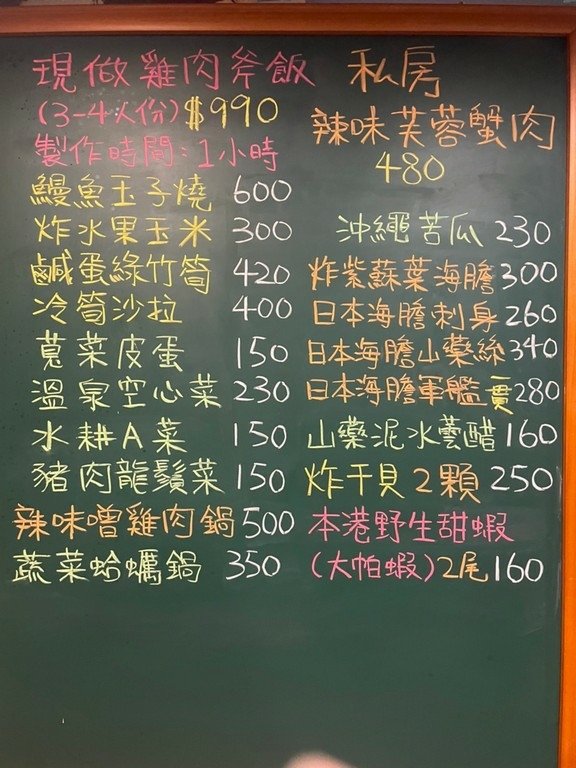 現做雞肉斧飯
(3-4人份)$990
製作時間:1小時
鰻魚玉子燒 600
炸水果玉米 300
鹹蛋綠竹筍 420
冷筍沙拉 400
莧菜皮蛋 150
溫泉空心菜 230
水耕A菜 150
豬肉龍鬚菜 150
辣味噌雞肉鍋 500
蔬菜蛤蠣鍋 350
私房
辣味芙蓉蟹肉
480
沖繩苦瓜 230
炸紫蘇葉海膽 300
日本海膽刺身 260
日本海膽山藥絲 340
日本海膽軍艦一貫 280
山藥泥水雲醋 160
炸干貝2顆 250
本港野生甜蝦
(大帕蝦)2尾 160